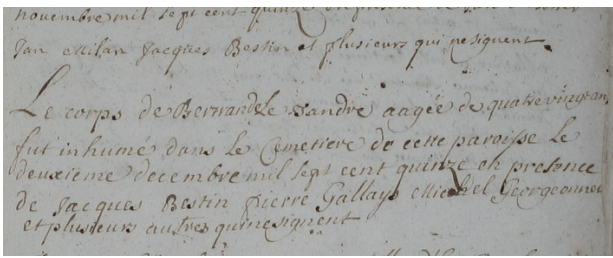 novembre mil sept cent quinze en presence de
Jan Milan Jacques Bestin et plusieurs qui ne signent
Le corps de Bertrande Le Vandre aagée de quatre vingt an
fut inhumé dans le Cemetiere de cette paroisse le
deuxieme decembre mil sept cent quinze en presence
de Jacques Bestin pierre Gallays Michel Georgeonnel
et plusieurs autres qui ne signent